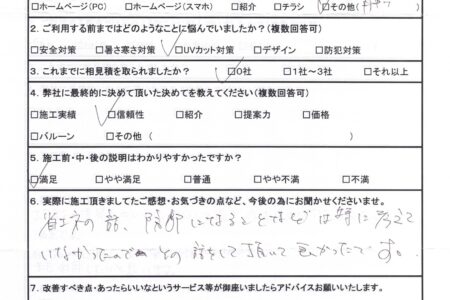 □ホームページ(PC) □ホームページ(スマホ) □紹介 □チラシ □その他(
2. ご利用する前まではどのようなことに悩んでいましたか?(複数回答可)
□安全対策 □暑さ寒さ対策 □UVカット対策 □デザイン □防犯対策
3. これまでに相見積を取られましたか? □0社 □1社～3社 □それ以上
4. 弊社に最終的に決めて頂いた決めてを教えてください(複数回答可)
□施工実績 □信頼性 □紹介 □提案力 □価格
□バルーン □その他( )
5. 施工前・中・後の説明はわかりやすかったですか?
□満足 □やや満足 □普通 □やや不満 □不満
6. 実際に施工頂きましてたご感想・お気づきの点など、今後の為にお聞かせくださいませ。
省エネの話、になることなどは特に考えて
いなかったので その話をして頂いて良かったで す。
7. 改善すべき点・あったらいいなというサービス等が御座いましたらアドバイスお願いいたします。